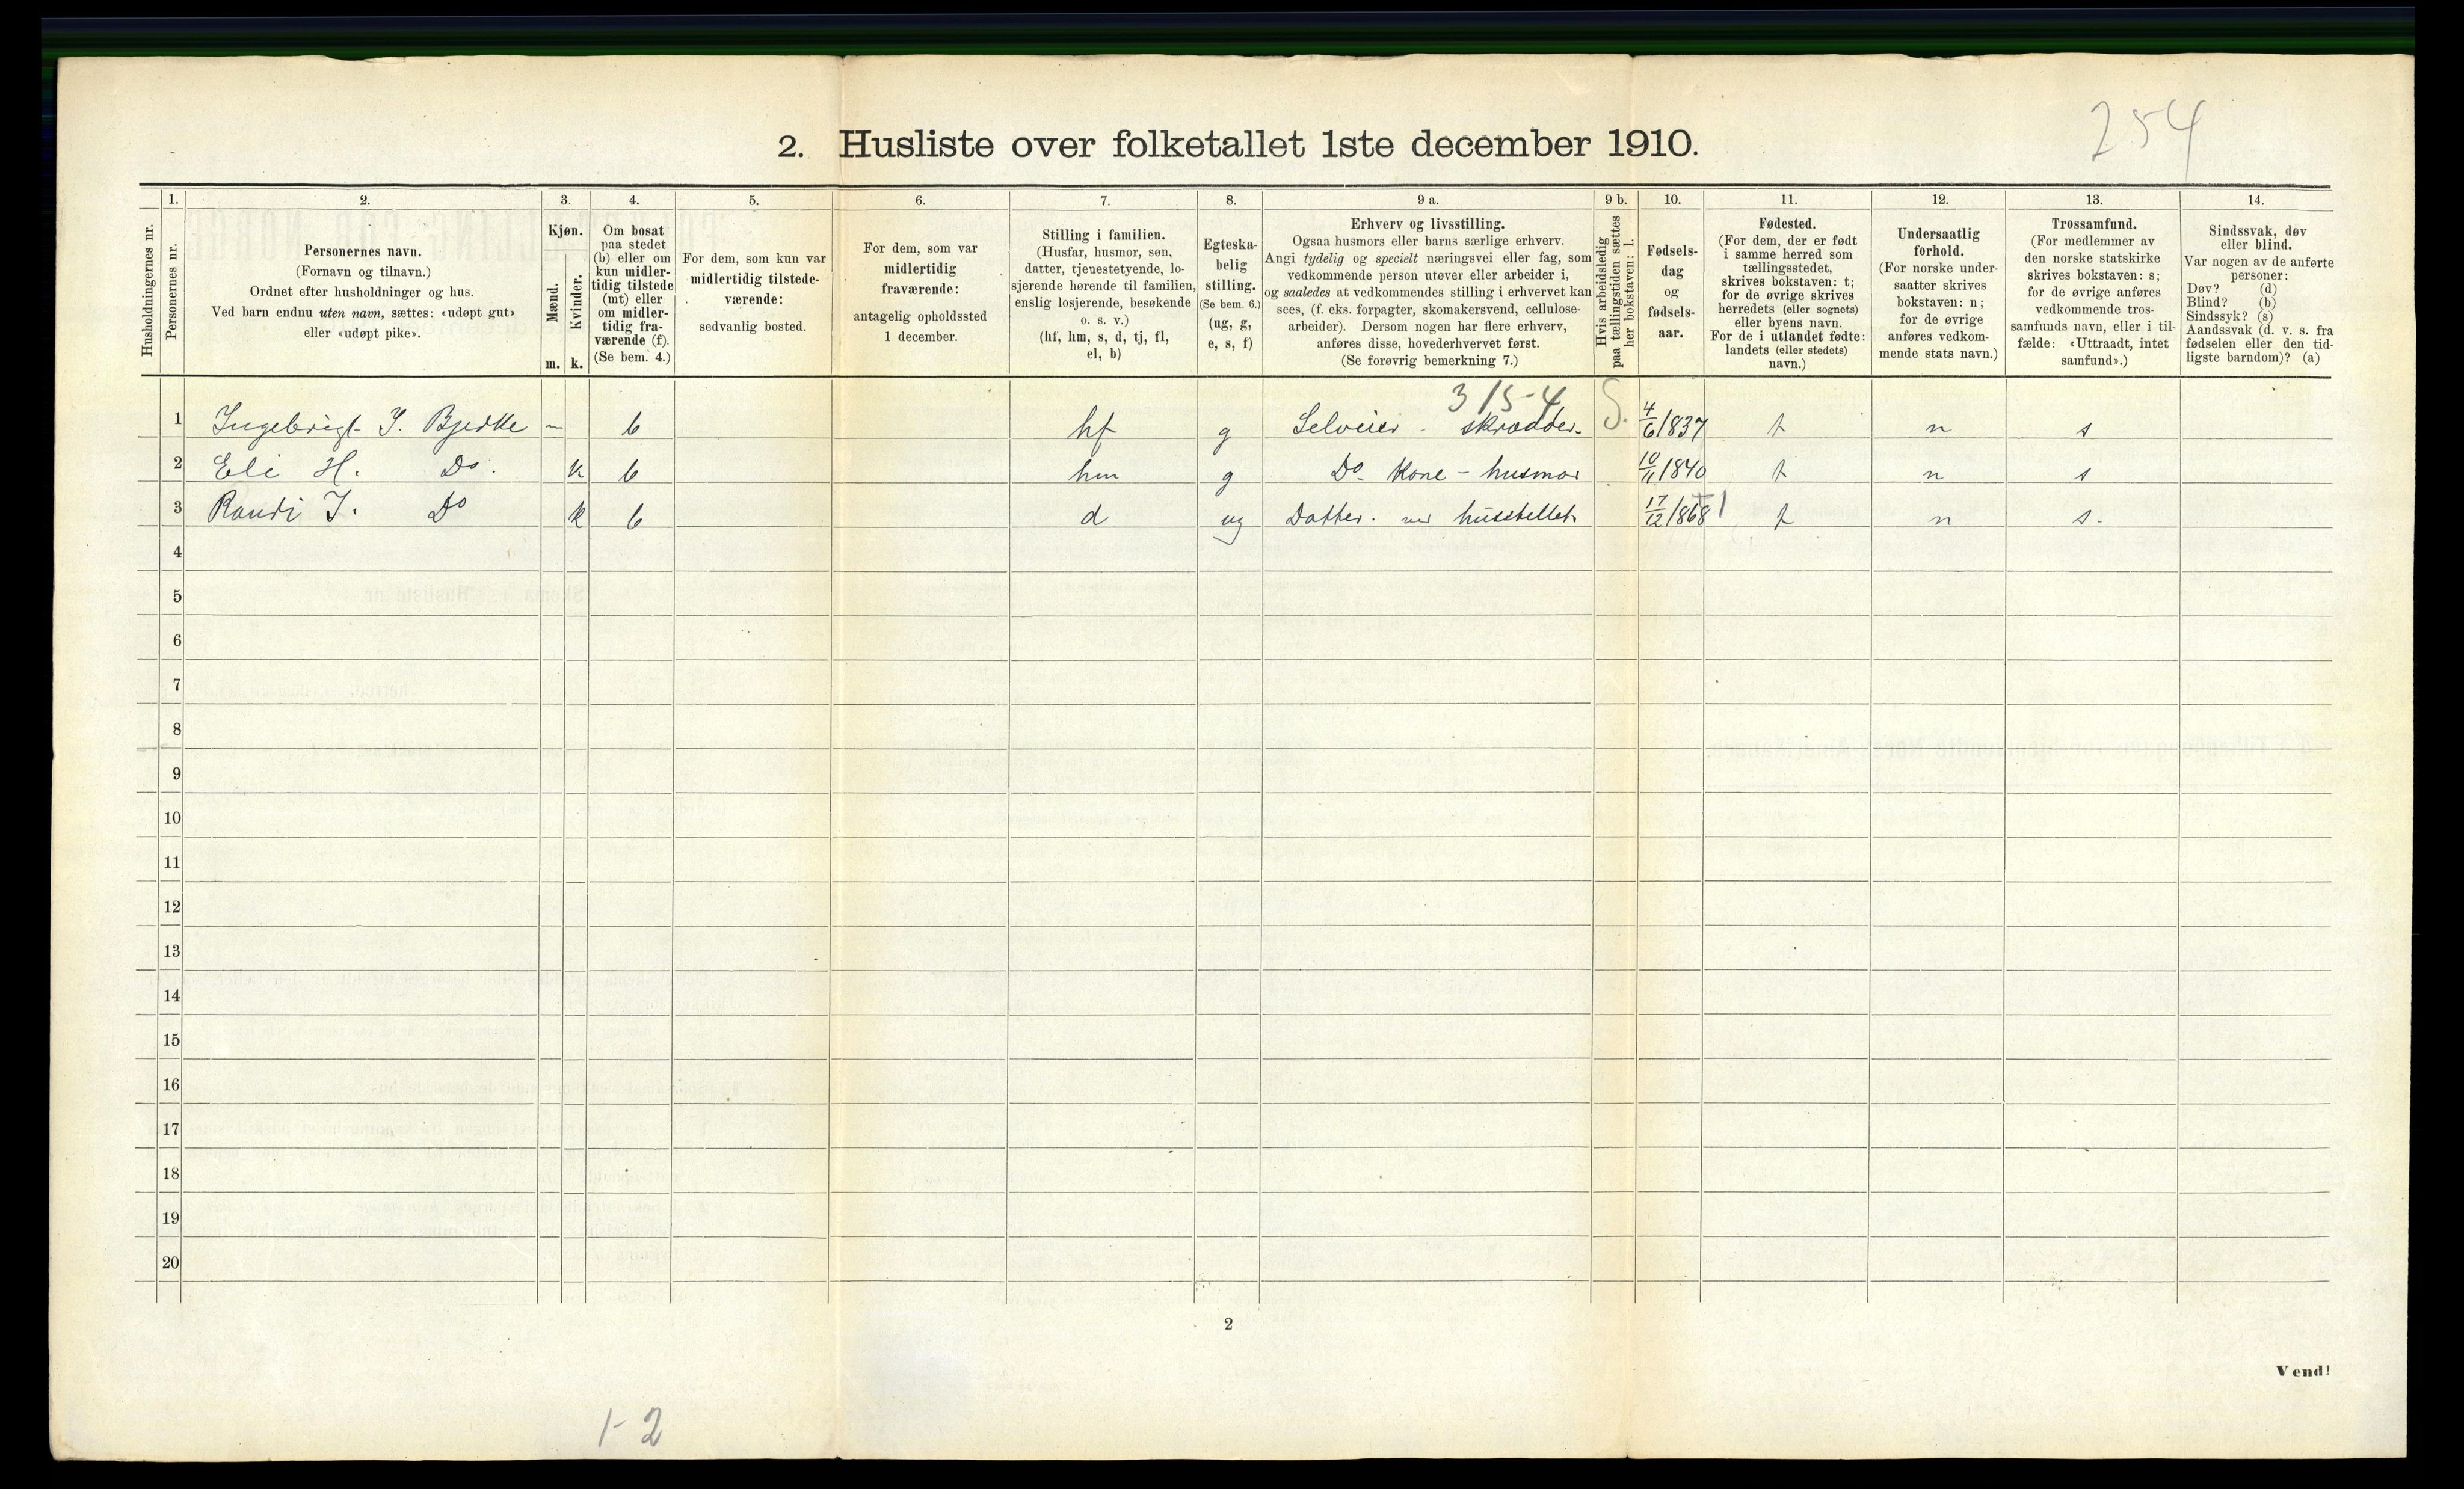 254
2. Husliste over folketallet 1ste december 1910.
Husholdningernes nr.
1.
Personernes nr.
2.
Personernes navn.
(Fornavn og tilnavn.)
Ordnet efter husholdninger og hus.
Ved barn endnu uten navn, sættes: «udøpt gut»
eller «udøpt pike».
3.
Kjøn.
Mænd.
m.
Kvinder.
k.
4.
Om bosat
paa stedet
(b) eller om
kun midler-
tidig tilstede
(mt) eller
om midler-
tidig fra-
værende (f).
(Se bem. 4.)
5.
For dem, som kun var
midlertidig tilstede-
værende:
sedvanlig bosted.
6.
For dem, som var
midlertidig
fraværende:
antagelig opholdssted
1 december.
7.
Stilling i familien.
(Husfar, husmor, søn,
datter, tjenestetyende, lo-
sjerende hørende til familien,
enslig losjerende, besøkende
o. s. v.)
(hf, hm, s, d, tj, fl,
el, b)
8.
Egteska-
belig
stilling.
(Se bem. 6.)
(ug, g,
e, s, f)
9 a.
Erhverv og livsstilling.
Ogsaa husmors eller barns særlige erhverv.
Angi tydelig og specielt næringsvei eller fag, som
vedkommende person utøver eller arbeider i,
og saaledes at vedkommendes stilling i erhvervet kan
sees, (f. eks. forpagter, skomakersvend, cellulose-
arbeider). Dersom nogen har flere erhverv,
anføres disse, hovederhvervet først.
(Se forøvrig bemerkning 7.)
9 b.
Hvis arbeidsledig
paa tællingstiden sættes
her bokstaven: l.
10.
Fødsels-
dag
og
fødsels-
aar.
11.
Fødested.
(For dem, der er født
i samme herred som
tællingsstedet,
skrives bokstaven: t;
for de øvrige skrives
herredets (eller sognets)
eller byens navn.
For de i utlandet fødte:
landets (eller stedets)
navn.)
12.
Undersaatlig
forhold.
(For norske under-
saatter skrives
bokstaven: n;
for de øvrige
anføres vedkom-
mende stats navn.)
13.
Trossamfund.
(For medlemmer av
den norske statskirke
skrives bokstaven: s;
for de øvrige anføres
vedkommende tros-
samfunds navn, eller i til-
fælde: «Uttraadt, intet
samfund».)
14.
Sindssvak, døv
eller blind.
Var nogen av de anførte
personer:
Døv? (d)
Blind? (b)
Sindssyk? (s)
Aandssvak (d. v. s. fra
fødselen eller den tid-
ligste barndom)? (a)
315-4
1 Ingebrigt I. Bjerke m b hf g Selveier - skrædder. S. 4/6 1837 t n s
2 Eli H. Do. k b hm g Do. Kone - husmor 10/11 1840 t n s
3 Randi I. Do k b d ug Datter. ved husstellet. 17/12 1868 t n s.
4
5
6
7
8
9
10
11
12
13
14
15
16
17
18
19
20
2
Vend!
1-2